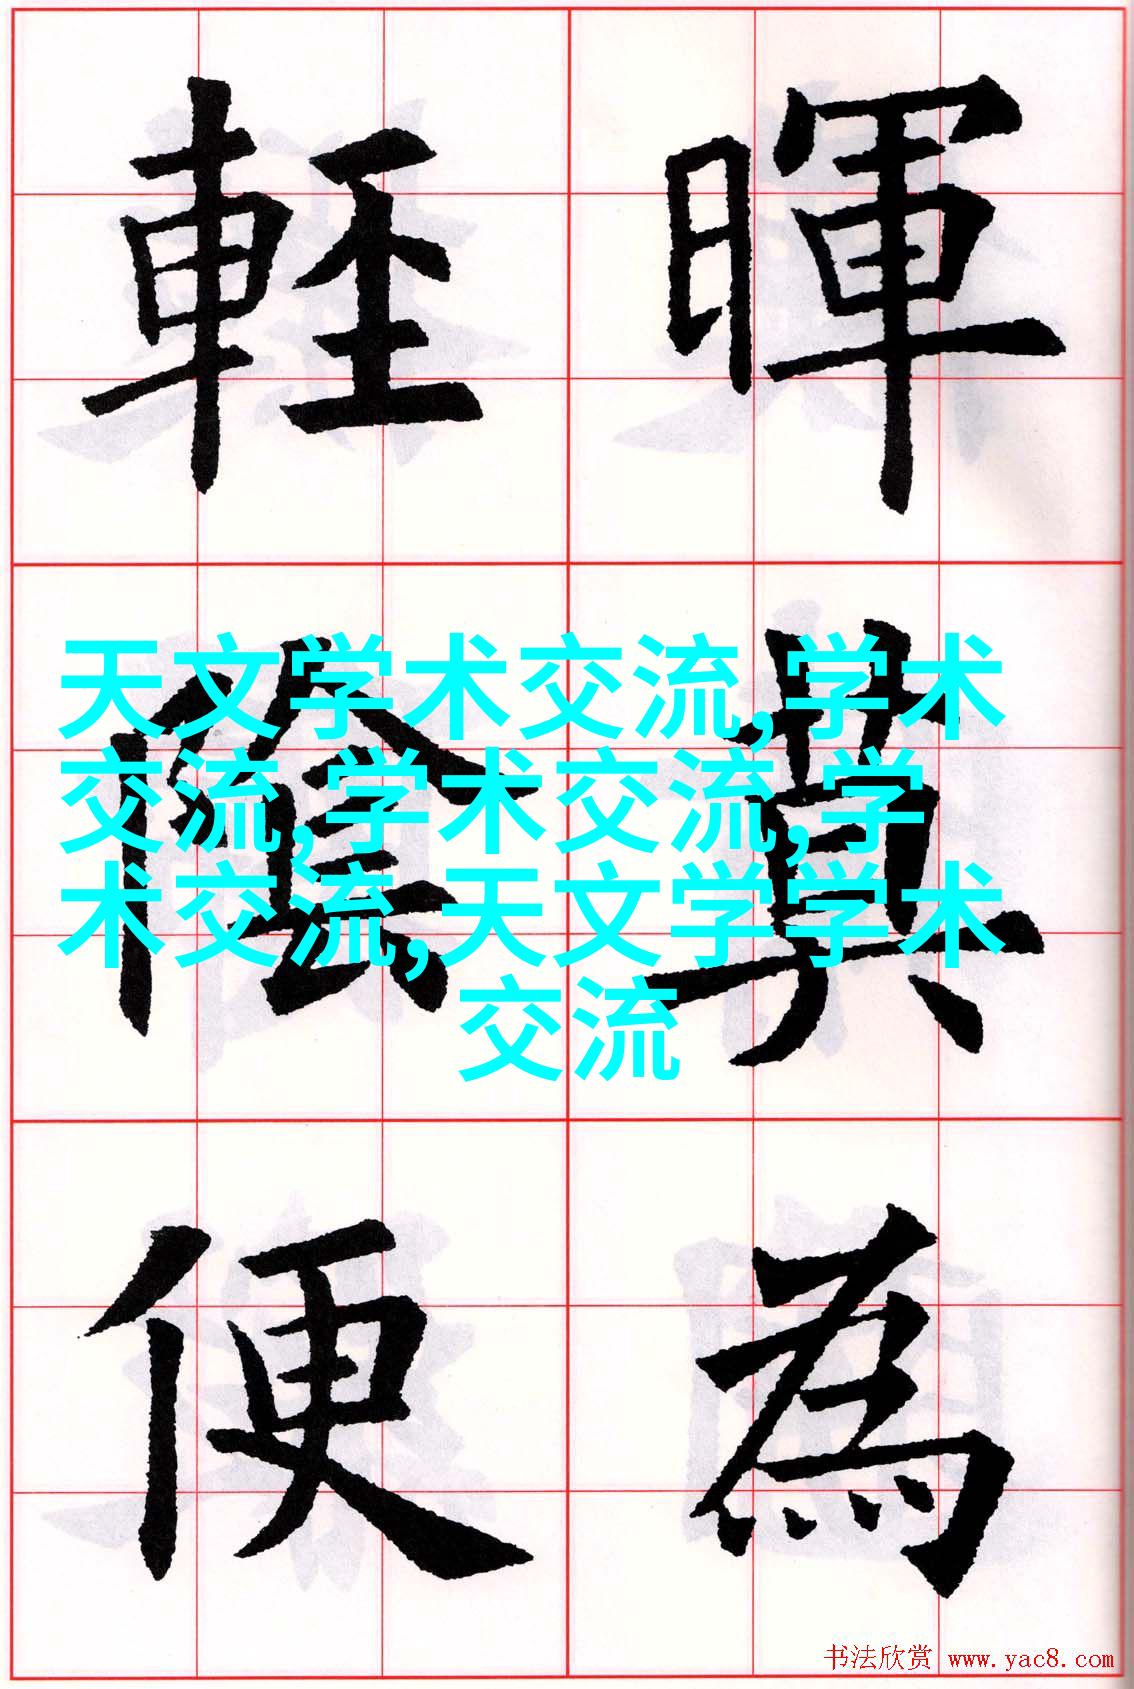 暉莫為
輕陰便
天文学术交流,学术
交流,学术交流,学
术交流,天文学学术
交流
书法欣赏 www.yac8.com